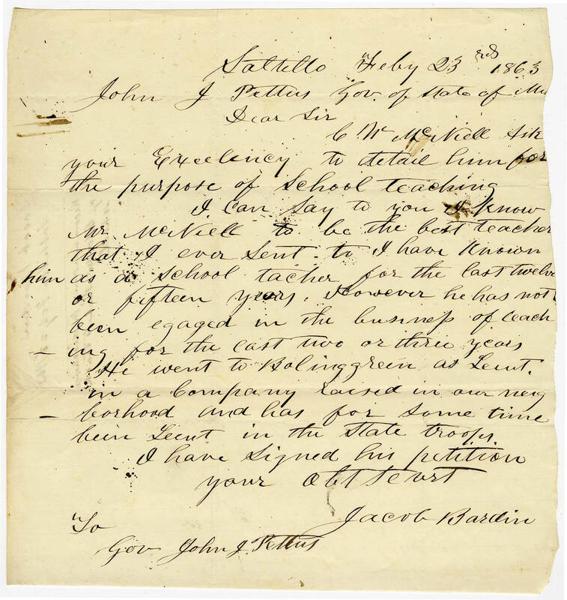 Saltillo Feby 23rd 1863
John J Pettus Gov. of State of Mi
Dear Sir
C W McNiell Ask
your Excelency to detail him for
the purpose of School teaching
I can Say to you I Know
Mr McNiell to be the best teacher
that I ever Sent to I have Known
him as a School tacher for the last twelve
or fifteen years, However he has not
been egaged in the business of teach
- ing for the last two or three years
He went to Bolinggreen as Leut.
in a Company raised in our neig
- borhood and has for Some time
bein Leut in the State troops
I have Signed his petition
your Obt Servt
Jacob Bardin
To
Gov John J Pettus